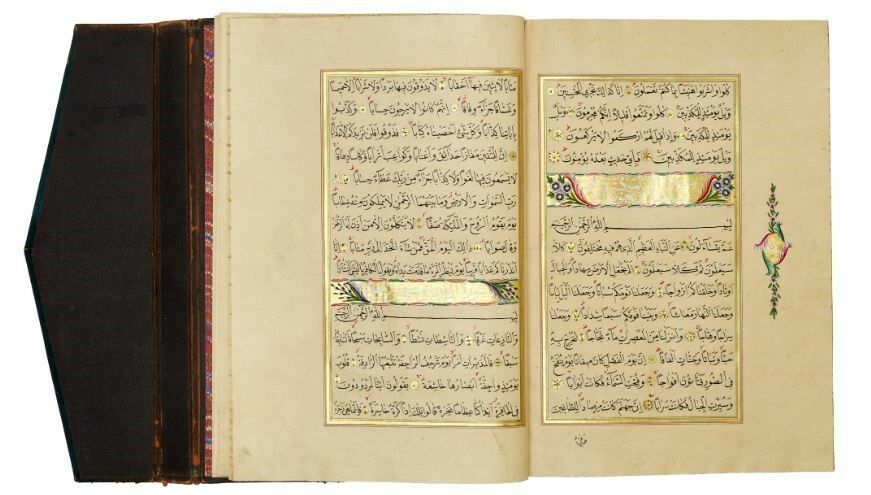 كلوا واشربوا هنيئا بما كنتم تعملون انا كذلك نجزي المحسنين
ويل يومئذ للمكذبين كلوا وتمتعوا قليلا انكم مجرمون ويل
يومئذ للمكذبين واذا قيل لهم اركعوا لا يركعون
ويل يومئذ للمكذبين فباي حديث بعده يؤمنون
بسم الله الرحمن الرحيم
عم يتساءلون عن النبأ العظيم الذي هم فيه مختلفون كلا
سيعلمون ثم كلا سيعلمون الم نجعل الارض مهادا والجبال
اوتادا وخلقناكم ازواجا وجعلنا نومكم سباتا وجعلنا الليل لباسا
وجعلنا النهار معاشا وبنينا فوقكم سبعا شدادا وجعلنا
سراجا وهاجا وانزلنا من المعصرات ماء ثجاجا لنخرج به
حبا ونباتا وجنات الفافا ان يوم الفصل كان ميقاتا يوم ينفخ
في الصور فتأتون افواجا وفتحت السماء فكانت ابوابا
وسيرت الجبال فكانت سرابا ان جهنم كانت مرصادا للطاغين
مآبا
مآبا لابثين فيها احقابا لا يذوقون فيها بردا ولا شرابا الا حميما
وغساقا جزاء وفاقا انهم كانوا لا يرجون حسابا وكذبوا
باياتنا كذابا وكل شئ احصيناه كتابا فذوقوا فلن نزيدكم الا عذابا
ان للمتقين مفازا حدائق واعنابا وكواعب اترابا وكأسا دهاقا
لا يسمعون فيها لغوا ولا كذابا جزاء من ربك عطاء حسابا
رب السموات والارض وما بينهما الرحمن لا يملكون منه خطابا
يوم يقوم الروح والملئكة صفا لا يتكلمون الا من اذن له الرحمن
وقال صوابا ذلك اليوم الحق فمن شاء اتخذ الى ربه مآبا انا
انذرناكم عذابا قريبا يوم ينظر المرء ما قدمت يداه ويقول الكافر يا ليتني كنت ترابا
بسم الله الرحمن الرحيم
والنازعات غرقا والناشطات نشطا والسابحات سبحا فالسابقات
سبقا فالمدبرات امرا يوم ترجف الراجفة تتبعها الرادفة قلوب
يومئذ واجفة ابصارها خاشعة يقولون أئنا لمردودون
في الحافرة أئذا كنا عظاما نخرة قالوا تلك اذا كرة خاسرة فانما هي زجرة